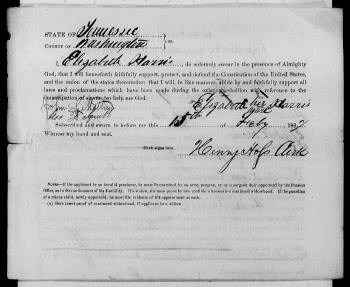 STATE OF Tennessee
COUNTY OF Washington } ss:
I, Elizabeth Harris, do solemnly swear in the presence of Almighty
God, that I will henceforth faithfully support, protect, and defend the Constitution of the United States,
and the union of the states thereunder; that I will, in like manner, abide by and faithfully support all
laws and proclamations which have been made during the existing rebellion with reference to the
emancipation of slaves: so help me God.
Elizabeth her Harris
mark
Subscribed and sworn to before me this 15th day of Feby 186
Witness my hand and seal.
Clerk signs here,
Henry Clerk
NOTE.—If the applicant be an invalid pensioner, he must be examined by an army surgeon, or by a surgeon duly appointed by the Pension
Office, as to the continuance of his disability. If a widow, she must prove by two credible witnesses her continued widowhood. If the guardian
of a minor child, newly appointed, he must file evidence of his appointment as such.
(a) Here insert proof of continued widowhood, if applicant be a widow.